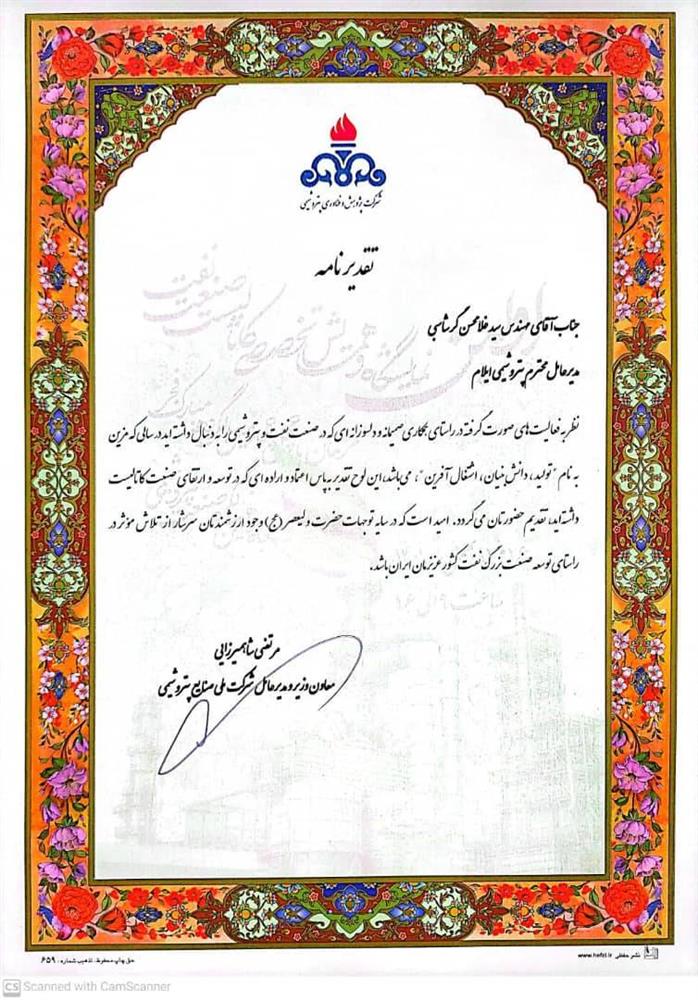 شرکت پژوهش و فناوری پتروشیمی
تقدیرنامه
جناب آقای مهندس سید غلامحسن گرشاسبی
مدیرعامل محترم پتروشیمی ایلام
نظر به فعالیت‌های صورت گرفته در راستای همکاری صمیمانه و دلسوزانه ای که در صنعت نفت و پتروشیمی را به دنبال داشته اید در سالی که مزین
به نام "تولید، دانش بنیان، اشتغال آفرین"، می‌باشد، این لوح تقدیر به پاس اعتماد و اراده ای که در توسعه و ارتقای صنعت کاتالیست
داشته اید، تقدیم حضورتان می گردد. امید است که در سایه توجهات حضرت ولیعصر (عج) وجود ارزشمندتان سرشار از تلاش مؤثر در
راستای توسعه صنعت بزرگ نفت کشور عزیزمان ایران باشد.
اولین
نمایشگاه و همایش تخصصی کاتالیست صنعت نفت
ساعت ۹ الی ۱۶
مرتضی شاهمیرزایی
معاون وزیر و مدیرعامل شرکت ملی صنایع پتروشیمی
حق چاپ محفوظ، تذهیب شماره: ۶۵۹
www.hefzi.ir نشر حفظی
CS Scanned with CamScanner